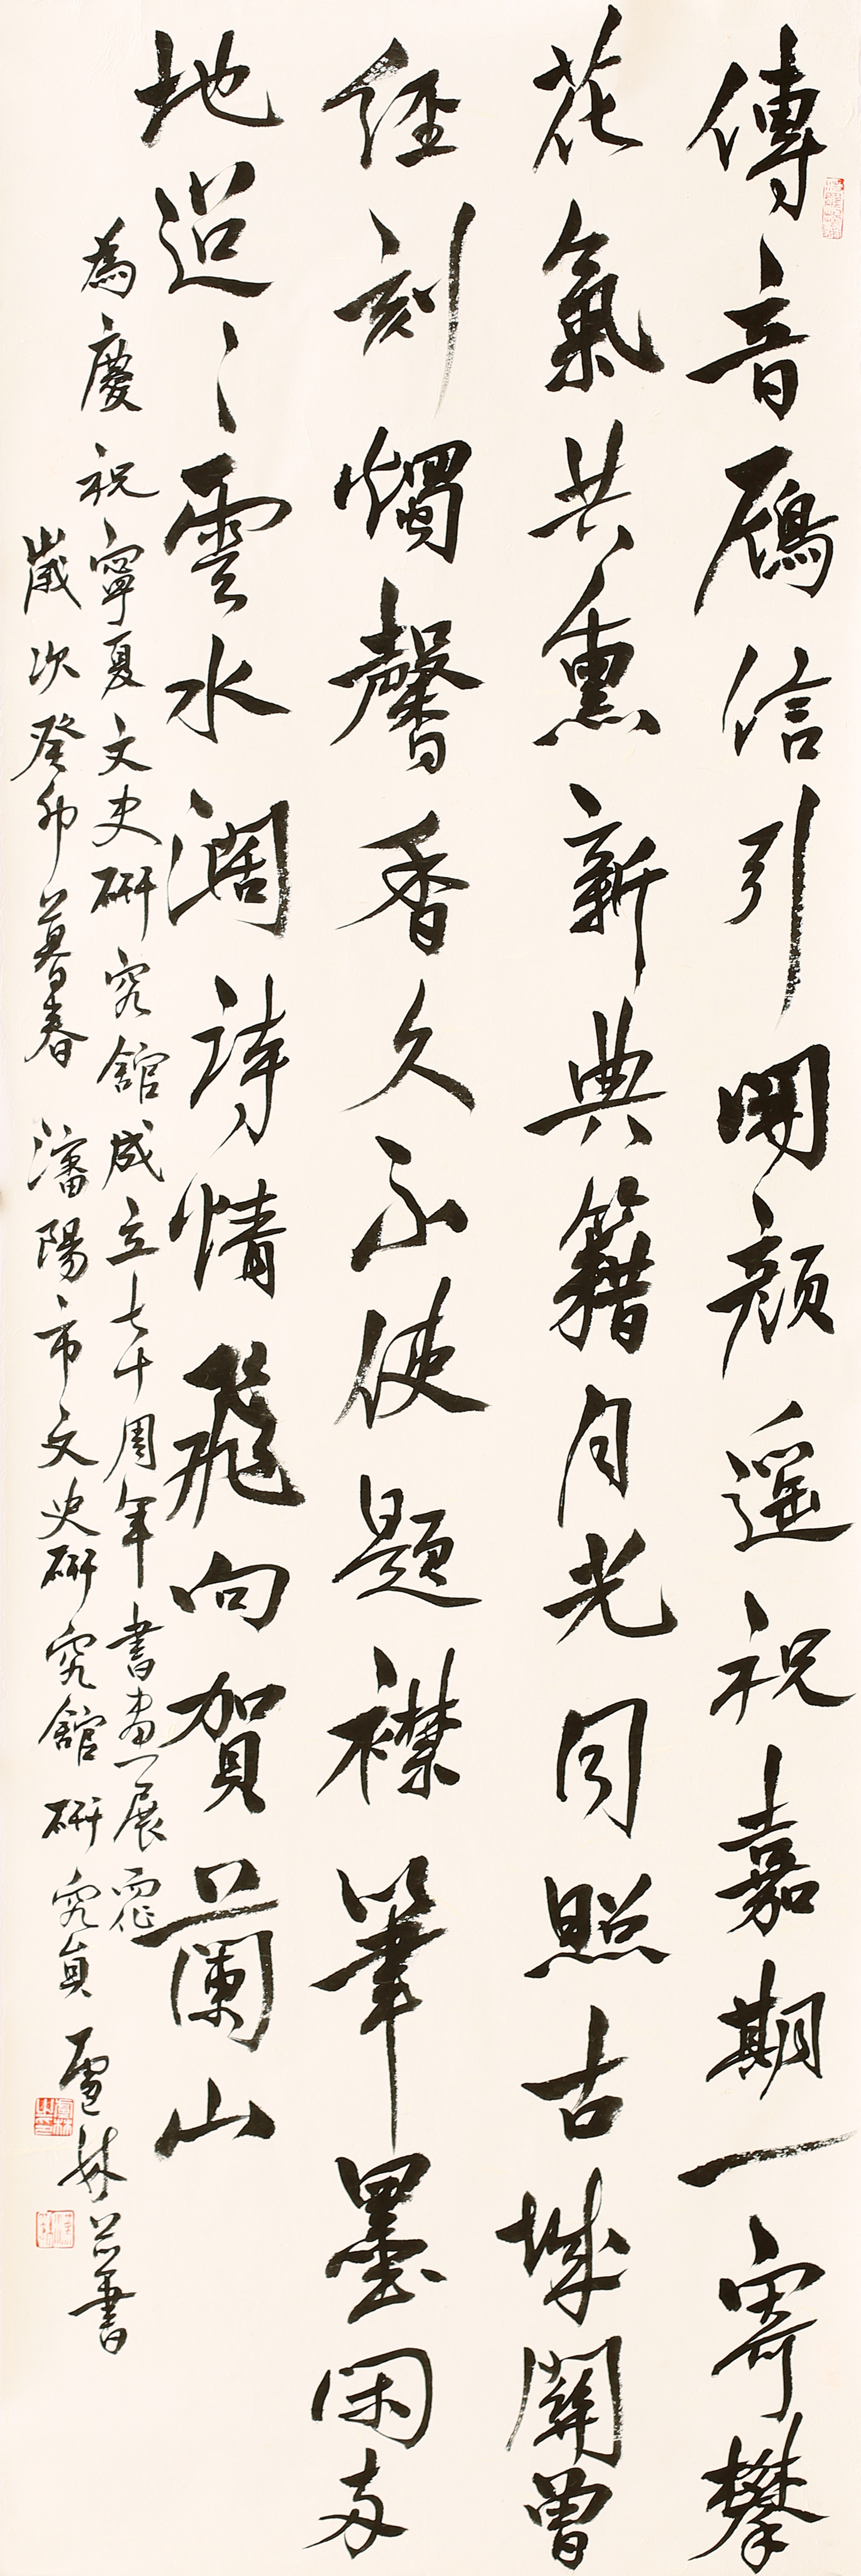 傳音雁信引開顏遥祝嘉期一寄攀
花氣共熏新典籍月光同照古城關曾
經刻燭馨香久不使題襟筆墨閑女
地迢〻雲水闊詩情飛向賀蘭山
為慶祝寧夏文史研究館成立七十周年書畫展而作
歲次癸卯暮春 瀋陽市文史研究館研究員 盧林并書